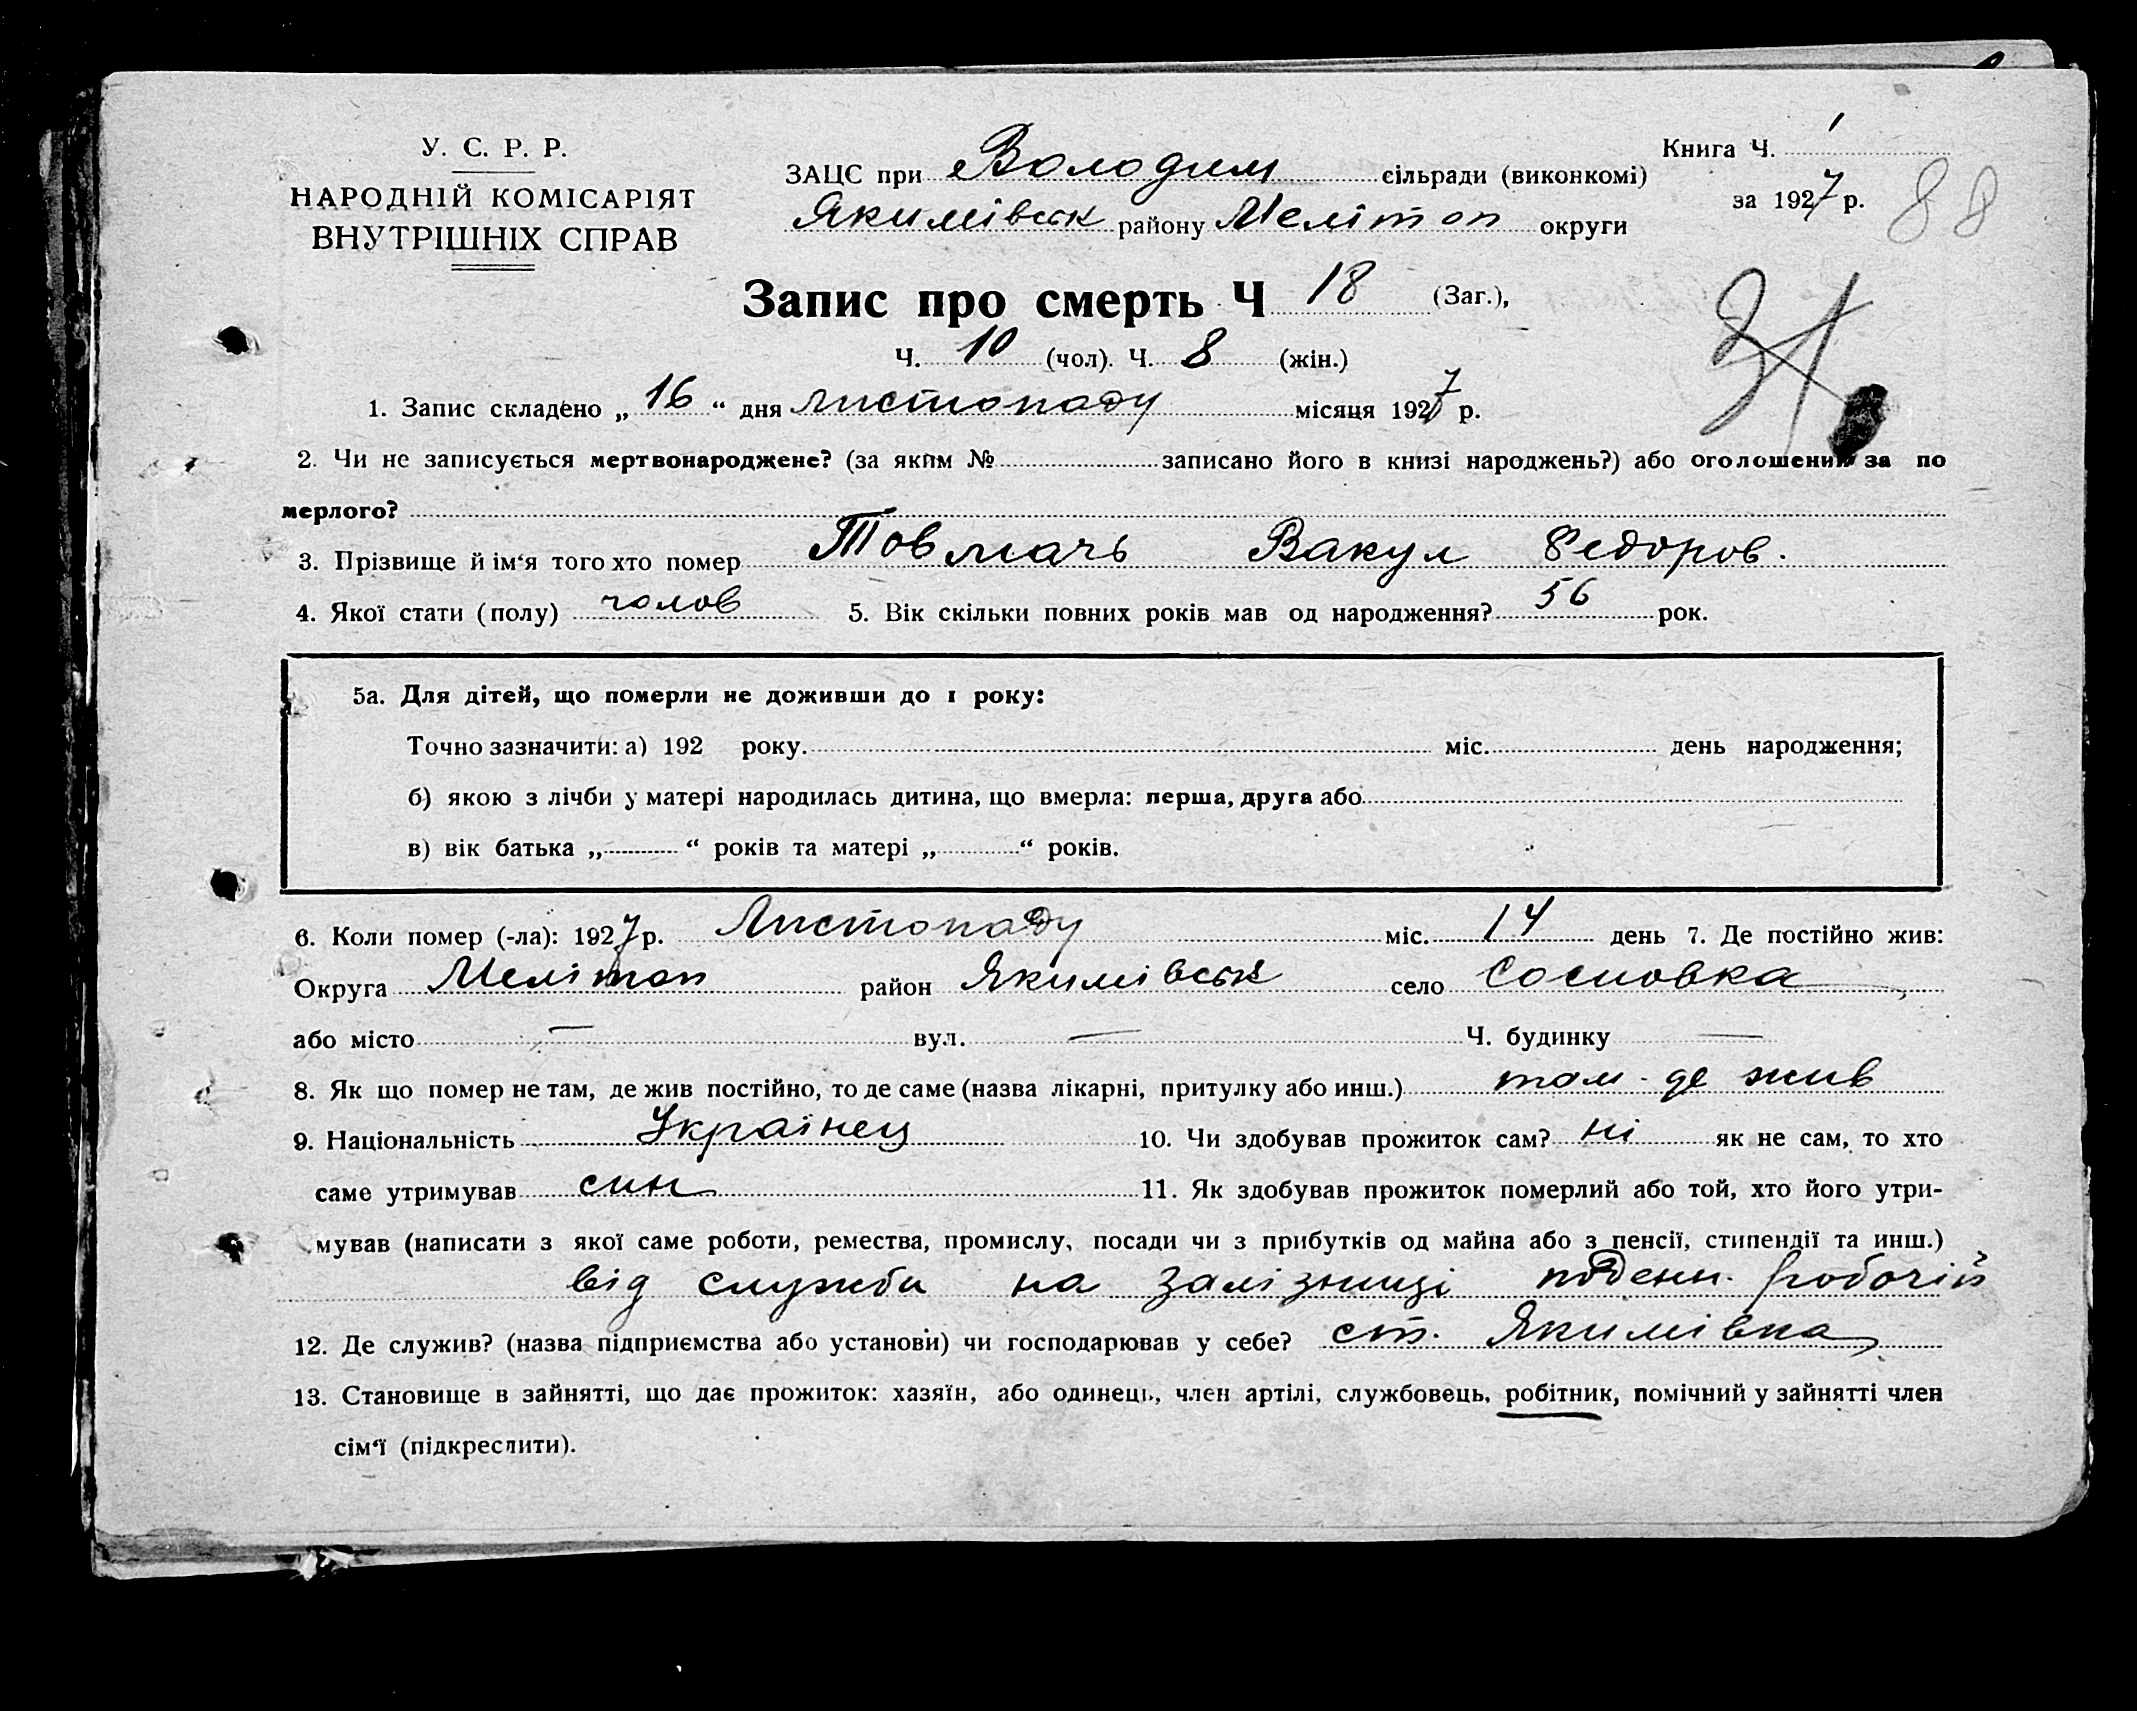 У. С. Р. Р.
НАРОДНІЙ КОМІСАРІЯТ
ВНУТРІШНІХ СПРАВ
ЗАЦС при Володим сільради (виконкомі)
Якимівськ району Мелітоп округи
Книга Ч. 1
за 1927 р.
88
Запис про смерть Ч 18 (Заг.),
Ч. 10 (чол). Ч. 8 (жін.)
1. Запис складено „ 16 “ дня листопаду місяця 1927 р.
2. Чи не записується мертвонароджене? (за яким № записано його в книзі народжень?) або оголошений за по
мерлого?
3. Прізвище й ім‘я того хто помер Товмачь Вакул Федоров.
4. Якої стати (полу) чолов 5. Вік скільки повних років мав од народження? 56 рок.
5а. Для дітей, що померли не доживши до 1 року:
Точно зазначити: а) 192 року. міс. день народження;
б) якою з лічби у матері народилась дитина, що вмерла: перша, друга або
в) вік батька „ “ років та матері „ “ років.
6. Коли помер (-ла): 1927 р. Листопаду міс. 14 день 7. Де постійно жив:
Округа Мелітоп район Якимівськ село Сосновка
або місто — вул. — Ч. будинку —
8. Як що помер не там, де жив постійно, то де саме (назва лікарні, притулку або инш.) там - де жив
9. Національність Українец 10. Чи здобував прожиток сам? ні як не сам, то хто
саме утримував син 11. Як здобував прожиток померлий або той, хто його утри-
мував (написати з якої саме роботи, ремества, промислу, посади чи з прибутків од майна або з пенсії, стипендії та инш.)
від служби на залізниці поденн. робочій
12. Де служив? (назва підприємства або установи) чи господарював у себе? ст. Якимівка
13. Становище в зайнятті, що дає прожиток: хазяїн, або одинець, член артілі, службовець, робітник, помічний у зайнятті член
сім‘ї (підкреслити).